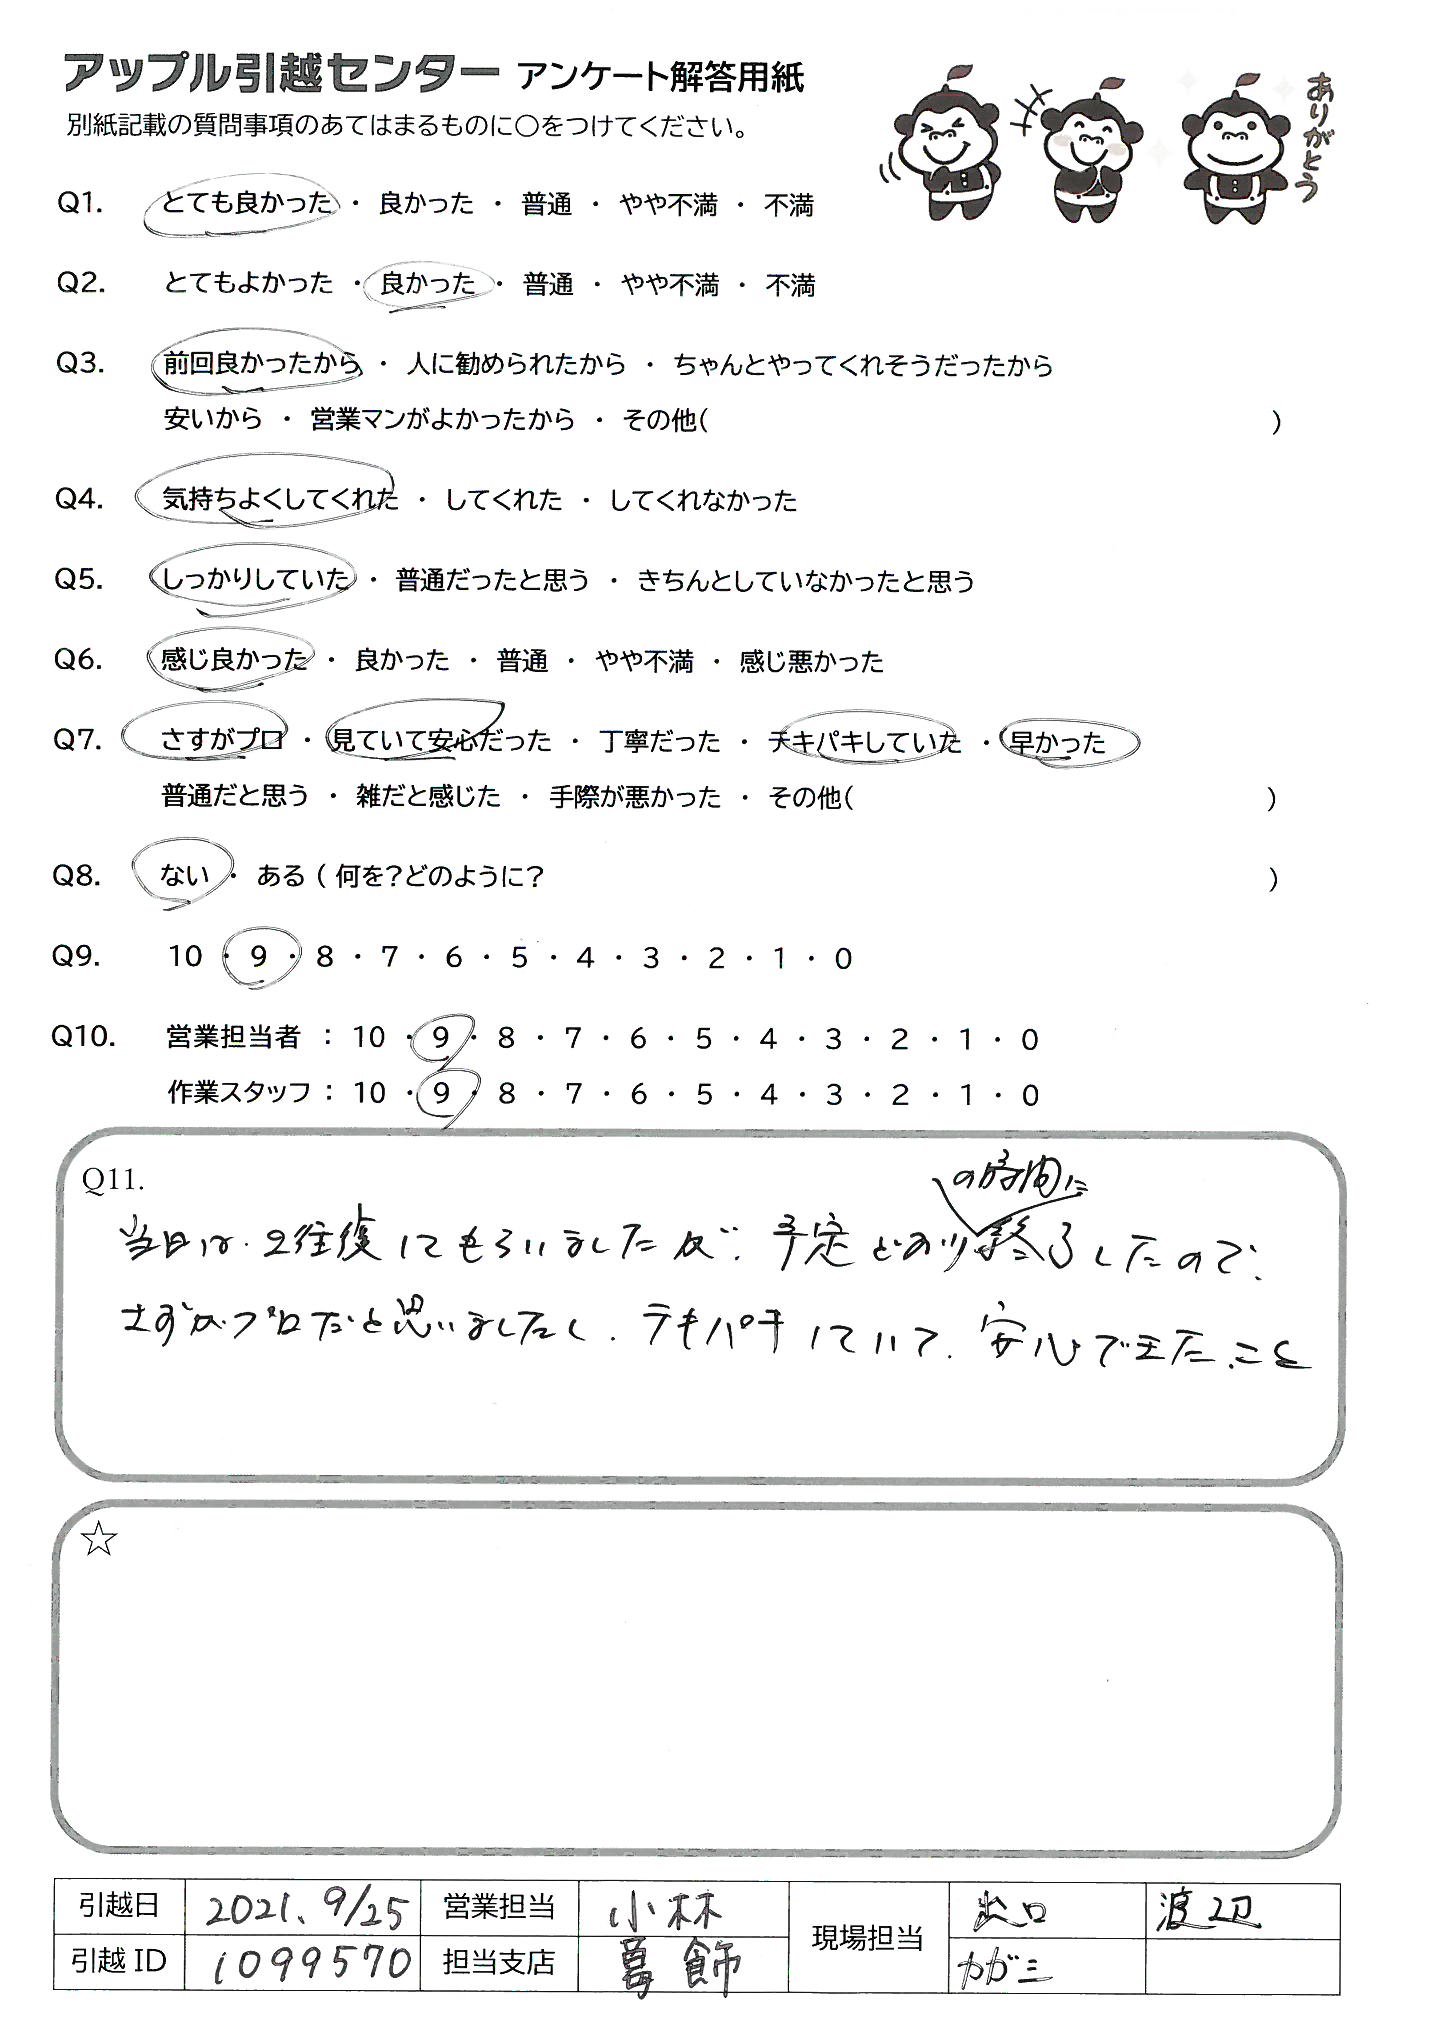 アップル引越センター アンケート解答用紙
別紙記載の質問事項のあてはまるものに○をつけてください。
ありがとう
Q1. とても良かった ・ 良かった ・ 普通 ・ やや不満 ・ 不満
Q2. とてもよかった ・ 良かった ・ 普通 ・ やや不満 ・ 不満
Q3. 前回良かったから ・ 人に勧められたから ・ ちゃんとやってくれそうだったから
安いから ・ 営業マンがよかったから ・ その他( )
Q4. 気持ちよくしてくれた ・ してくれた ・ してくれなかった
Q5. しっかりしていた ・ 普通だったと思う ・ きちんとしていなかったと思う
Q6. 感じ良かった ・ 良かった ・ 普通 ・ やや不満 ・ 感じ悪かった
Q7. さすがプロ ・ 見ていて安心だった ・ 丁寧だった ・ テキパキしていた ・ 早かった
普通だと思う ・ 雑だと感じた ・ 手際が悪かった ・ その他( )
Q8. ない ・ ある ( 何を?どのように? )
Q9. 10 ・ 9 ・ 8 ・ 7 ・ 6 ・ 5 ・ 4 ・ 3 ・ 2 ・ 1 ・ 0
Q10. 営業担当者 : 10 ・ 9 ・ 8 ・ 7 ・ 6 ・ 5 ・ 4 ・ 3 ・ 2 ・ 1 ・ 0
作業スタッフ : 10 ・ 9 ・ 8 ・ 7 ・ 6 ・ 5 ・ 4 ・ 3 ・ 2 ・ 1 ・ 0
Q11.
の時間に
当日は、2往復してもらいましたが、予定どおり終了したので、
さすがプロだと思いましたし、テキパキしていて、安心できたこと
☆
引越日 2021.9/25 営業担当 小林 現場担当 出口 渡辺
引越 ID 1099570 担当支店 葛飾 カガミ